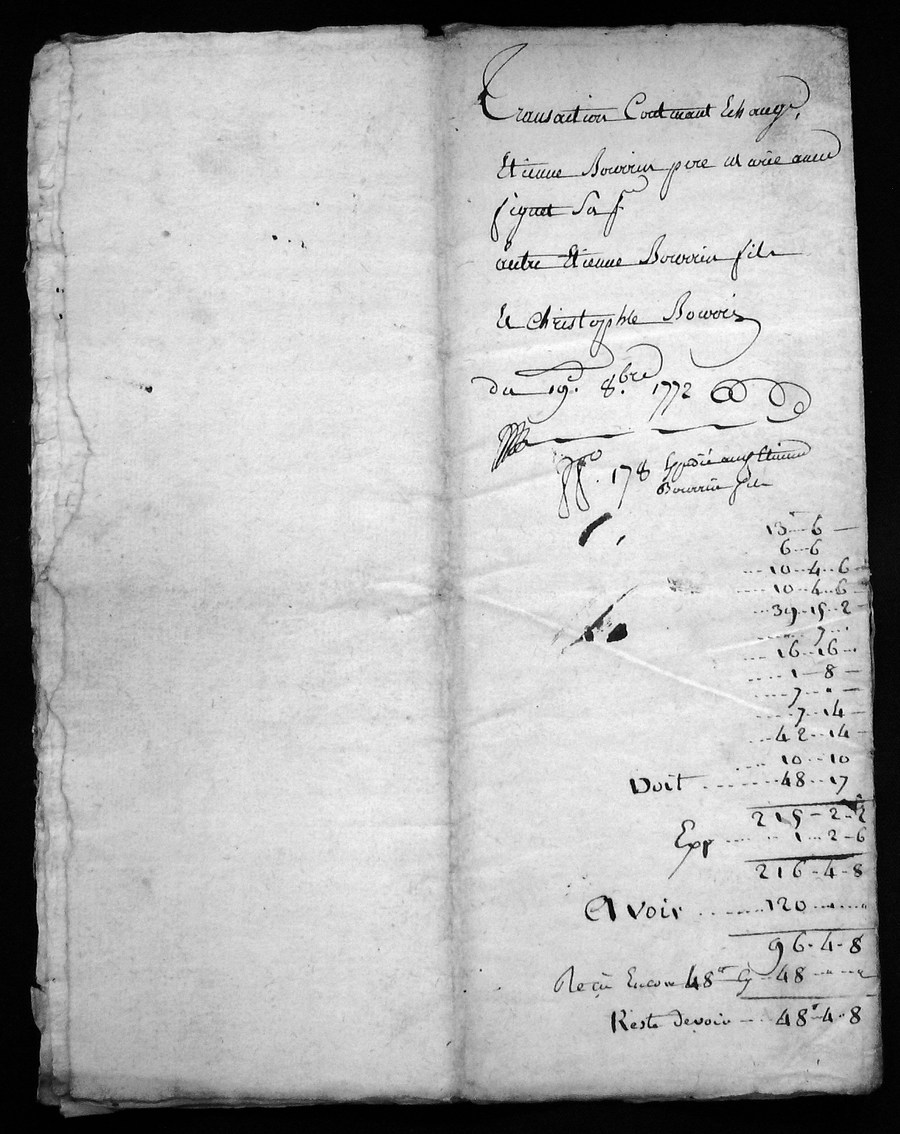 Transaction Contenant Echange,
Etienne Bouvrin pere et marie anne
figuet Sa f
autre Etienne Bouvrin fils
et Christophle Bouvrin
du 19e. 8.bre 1772
178 Expedié aud Etienne
Bouvrin fils
13 - 6 -
6 - 6
10 - 4 - 6
10 - 4 - 6
39 - 15 - 2
7
16 - 16
1 - 8 -
7 - " -
7 - 14
42 - 14
10 - 10
Doit 48 - 17
215 - 2 - 2
Exp 1 - 2 - 6
216 - 4 - 8
Avoir 120
96 - 4 - 8
Reçu Encore 48 48
Reste devoir 48 - 4 - 8